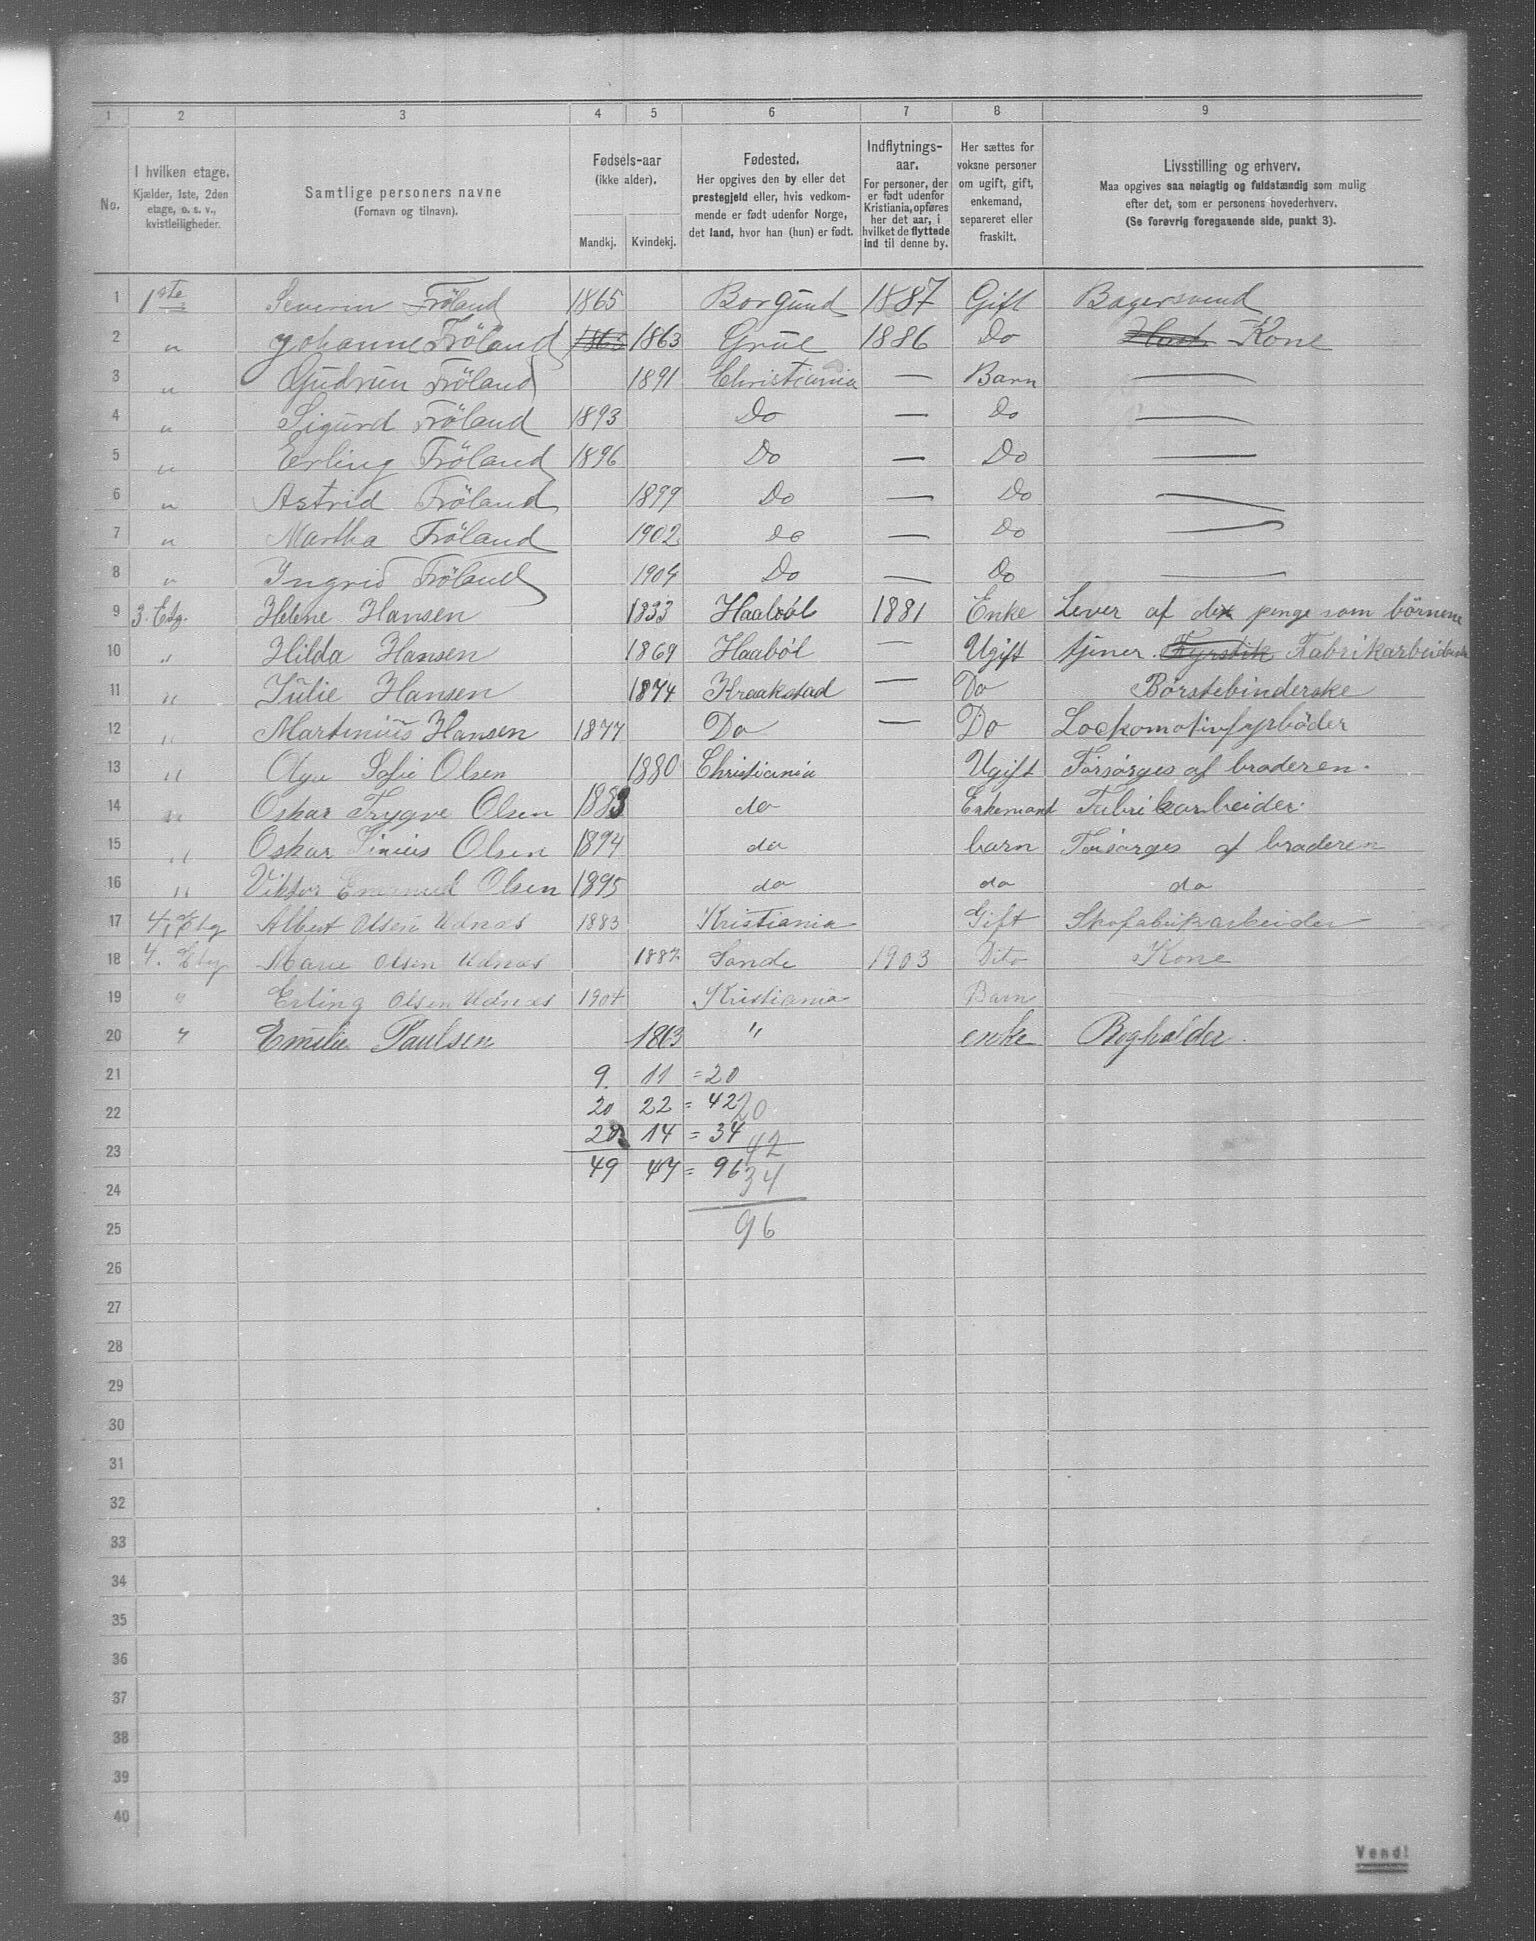 1 2 3 4 5 6 7 8 9
No.
I hvilken etage.
Kjælder, 1ste, 2den
etage, o. s. v.,
kvistleiligheder.
Samtlige personers navne
(Fornavn og tilnavn).
Fødsels-aar
(ikke alder).
Mandkj. Kvindekj.
Fødested.
Her opgives den by eller det
prestegjeld eller, hvis vedkom-
mende er født udenfor Norge,
det land, hvor han (hun) er født.
Indflytnings-
aar.
For personer, der
er født udenfor
Kristiania, opføres
her det aar, i
hvilket de flyttede
ind til denne by.
Her sættes for
voksne personer
om ugift, gift,
enkemand,
separeret eller
fraskilt.
Livsstilling og erhverv.
Maa opgives saa nøiagtig og fuldstændig som mulig
efter det, som er personens hovederhverv.
(Se forøvrig foregaaende side, punkt 3).
1 1ste Severin Fröland 1865 Borgund 1887 Gift Bagersvend
2 " Johanne Fröland 1863 Grue 1886 Do Kone
3 " Gudrun Fröland 1891 Christiania — Barn —
4 " Sigurd Fröland 1893 Do — Do —
5 " Erling Fröland 1896 Do — Do —
6 " Astrid Fröland 1899 Do — Do —
7 " Martha Fröland 1902 do — Do —
8 " Ingrid Fröland 1904 Do — Do —
9 3. Etg. Helene Hansen 1833 Haaböl 1881 Enke Lever af penge som börnene
10 " Hilda Hansen 1869 Haaböl — Ugift tjener Fyrstik Fabrikarbeiderske
11 " Julie Hansen 1874 Kraakstad — Do Börstebinderske
12 " Martinius Hansen 1877 Do — Do Lockomotivfyrböder
13 " Olga Sofie Olsen 1880 Christiania Ugift Forsörges af broderen.
14 " Oskar Trygve Olsen 1883 do Enkemand Fabrikarbeider.
15 " Oskar Linius Olsen 1894 do barn Forsörges af broderen
16 " Viktor Emanuel Olsen 1895 do do do
17 4. Etg Albert Olsen Udnæs 1883 Kristiania Gift Skofabrikarbeider
18 4. Etg Marie Olsen Udnæs 1882 Sande 1903 Dito Kone
19 " Erling Olsen Udnæs 1904 Kristiania Barn
20 " Emilie Paulsen 1863 " enke Bogholder
21 9. 11 = 20
22 20 22 = 42 20
23 20 14 = 34 42
49 47 = 96 34
24
25 96
26
27
28
29
30
31
32
33
34
35
36
37
38
39
40
Vend!